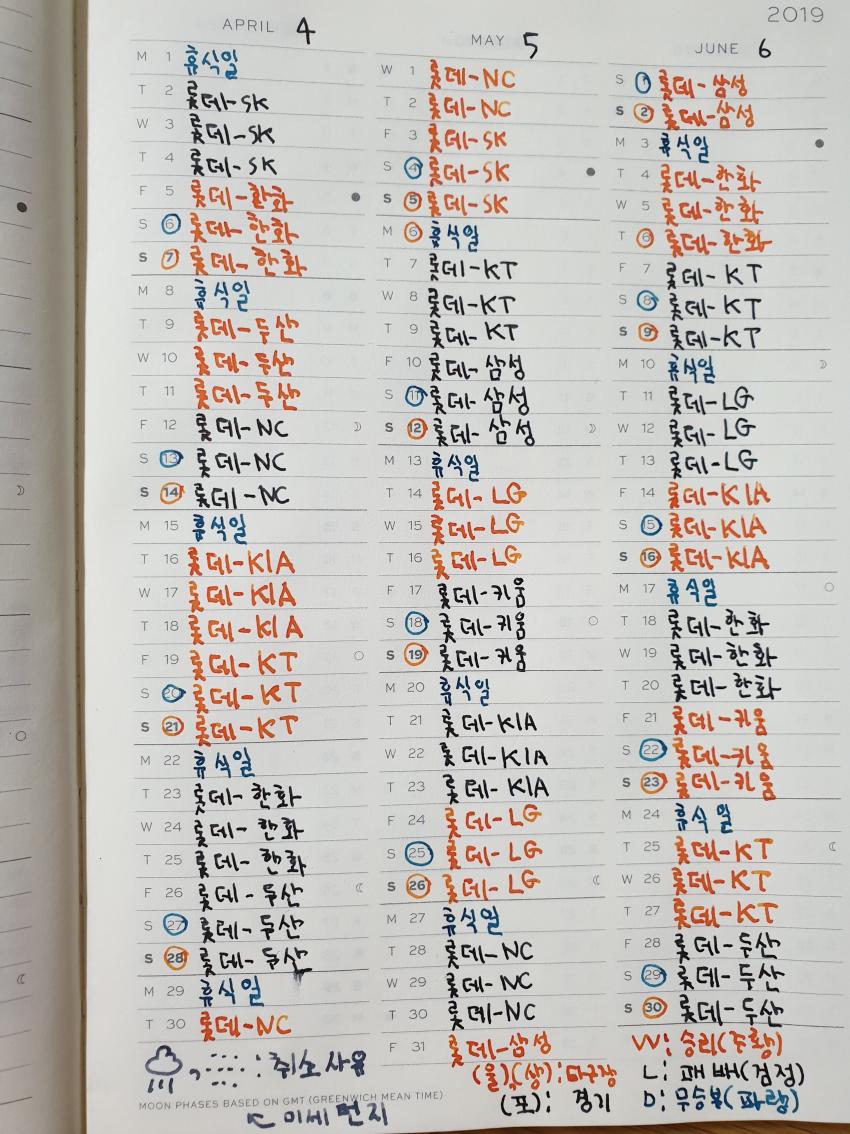 2019
APRIL 4
M 1 휴식일
T 2 롯데-SK
W 3 롯데-SK
T 4 롯데-SK
F 5 롯데-한화
S 6 롯데-한화
S 7 롯데-한화
M 8 휴식일
T 9 롯데-두산
W 10 롯데-두산
T 11 롯데-두산
F 12 롯데-NC
S 13 롯데-NC
S 14 롯데-NC
M 15 휴식일
T 16 롯데-KIA
W 17 롯데-KIA
T 18 롯데-KIA
F 19 롯데-KT
S 20 롯데-KT
S 21 롯데-KT
M 22 휴식일
T 23 롯데-한화
W 24 롯데-한화
T 25 롯데-한화
F 26 롯데-두산
S 27 롯데-두산
S 28 롯데-두산
M 29 휴식일
T 30 롯데-NC
, : 취소사유
MOON PHASES BASED ON GMT (GREENWICH MEAN TIME)
미세먼지
MAY 5
W 1 롯데-NC
T 2 롯데-NC
F 3 롯데-SK
S 4 롯데-SK
S 5 롯데-SK
M 6 휴식일
T 7 롯데-KT
W 8 롯데-KT
T 9 롯데-KT
F 10 롯데-삼성
S 11 롯데-삼성
S 12 롯데-삼성
M 13 휴식일
T 14 롯데-LG
W 15 롯데-LG
T 16 롯데-LG
F 17 롯데-키움
S 18 롯데-키움
S 19 롯데-키움
M 20 휴식일
T 21 롯데-KIA
W 22 롯데-KIA
T 23 롯데-KIA
F 24 롯데-LG
S 25 롯데-LG
S 26 롯데-LG
M 27 휴식일
T 28 롯데-NC
W 29 롯데-NC
T 30 롯데-NC
F 31 롯데-삼성
(울),(상): 타구장
(포): 경기
JUNE 6
S 1 롯데-삼성
S 2 롯데-삼성
M 3 휴식일
T 4 롯데-한화
W 5 롯데-한화
T 6 롯데-한화
F 7 롯데-KT
S 8 롯데-KT
S 9 롯데-KT
M 10 휴식일
T 11 롯데-LG
W 12 롯데-LG
T 13 롯데-LG
F 14 롯데-KIA
S 15 롯데-KIA
S 16 롯데-KIA
M 17 휴식일
T 18 롯데-한화
W 19 롯데-한화
T 20 롯데-한화
F 21 롯데-키움
S 22 롯데-키움
S 23 롯데-키움
M 24 휴식일
T 25 롯데-KT
W 26 롯데-KT
T 27 롯데-KT
F 28 롯데-두산
S 29 롯데-두산
S 30 롯데-두산
W: 승리(주황)
L: 패배(검정)
D: 무승부(파랑)